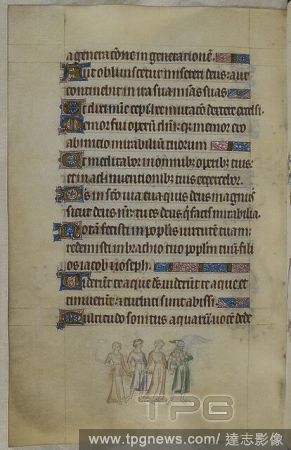 a generatione in generationem.
Aut obliviscetur misereri deus: aut
continebit in ira sua misas suas
Et dixi nunc cepi: hec mutacio dextere excelsi.
Memor fui operum dni: quia memor ero
ab inicio mirabilium tuorum
Et meditabor in omnibus operibus tuis:
et in adinventionibus tuis exercebor.
Ds in sco via tua quis deus magnus
sicut deus nr: tu es deus qui facis mirabilia
Notam fecisti in poplis virtutem tuam:
redemisti in brachio tuo poplm tuum fili
os iacob et ioseph.
Viderunt te aque ds viderunt te aque et
timuerunt: et turbati sunt abissi.
Multitudo sonitus aquarum: vocem dede
TPG
www.tpgnews.com/ 達志影像